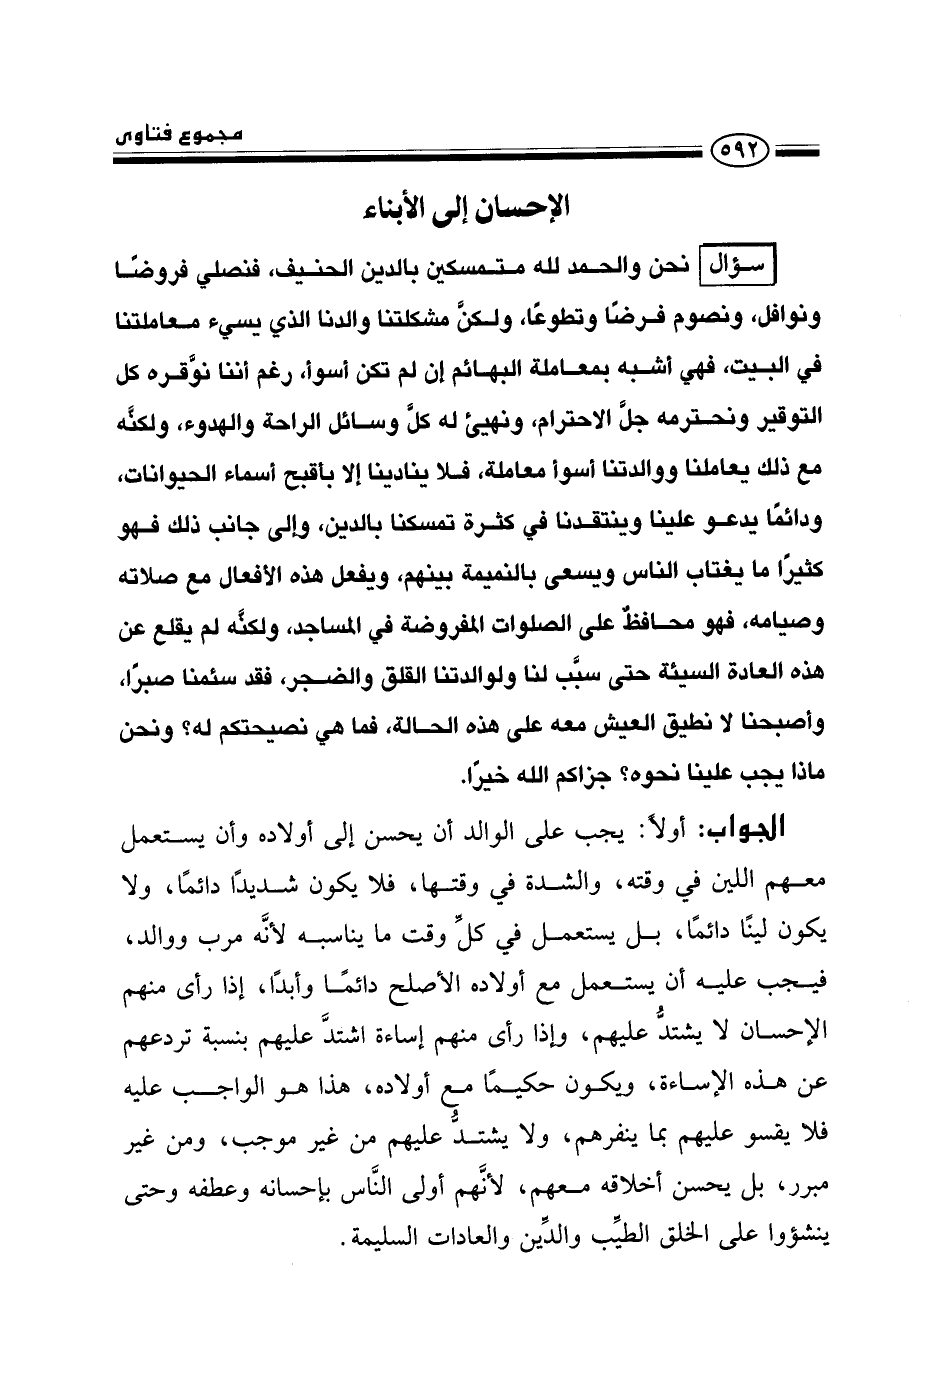 مجموع فتاوى
٥٩٢
الإحسان إلى الأبناء
سؤال نحن والحمد لله متمسكين بالدين الحنيف، فنصلي فروضًا
ونوافل، ونصوم فرضًا وتطوعًا، ولكنَّ مشكلتنا والدنا الذي يسيء معاملتنا
في البيت، فهي أشبه بمعاملة البهائم إن لم تكن أسوأ، رغم أننا نوَّقره كل
التوقير ونحترمه جلَّ الاحترام، ونهيئ له كلَّ وسائل الراحة والهدوء، ولكنَّه
مع ذلك يعاملنا ووالدتنا أسوأ معاملة، فلا ينادينا إلا بأقبح أسماء الحيوانات،
ودائمًا يدعو علينا وينتقدنا في كثرة تمسكنا بالدين، وإلى جانب ذلك فهو
كثيرًا ما يغتاب الناس ويسعى بالنميمة بينهم، ويفعل هذه الأفعال مع صلاته
وصيامه، فهو محافظٌ على الصلوات المفروضة في المساجد، ولكنَّه لم يقلع عن
هذه العادة السيئة حتى سبَّب لنا ولوالدتنا القلق والضجر، فقد سئمنا صبرًا،
وأصبحنا لا نطيق العيش معه على هذه الحالة، فما هي نصيحتكم له؟ ونحن
ماذا يجب علينا نحوه؟ جزاكم الله خيرًا.
الجواب: أولاً: يجب على الوالد أن يحسن إلى أولاده وأن يستعمل
معهم اللين في وقته، والشدة في وقتها، فلا يكون شديدًا دائمًا، ولا
يكون لينًا دائمًا، بل يستعمل في كلِّ وقت ما يناسبه لأنَّه مرب ووالد،
فيجب عليه أن يستعمل مع أولاده الأصلح دائمًا وأبدًا، إذا رأى منهم
الإحسان لا يشتدُّ عليهم، وإذا رأى منهم إساءة اشتدَّ عليهم بنسبة تردعهم
عن هذه الإساءة، ويكون حكيمًا مع أولاده، هذا هو الواجب عليه
فلا يقسو عليهم بما ينفرهم، ولا يشتدُّ عليهم من غير موجب، ومن غير
مبرر، بل يحسن أخلاقه معهم، لأنَّهم أولى النَّاس بإحسانه وعطفه وحتى
ينشؤوا على الخلق الطيِّب والدِّين والعادات السليمة.